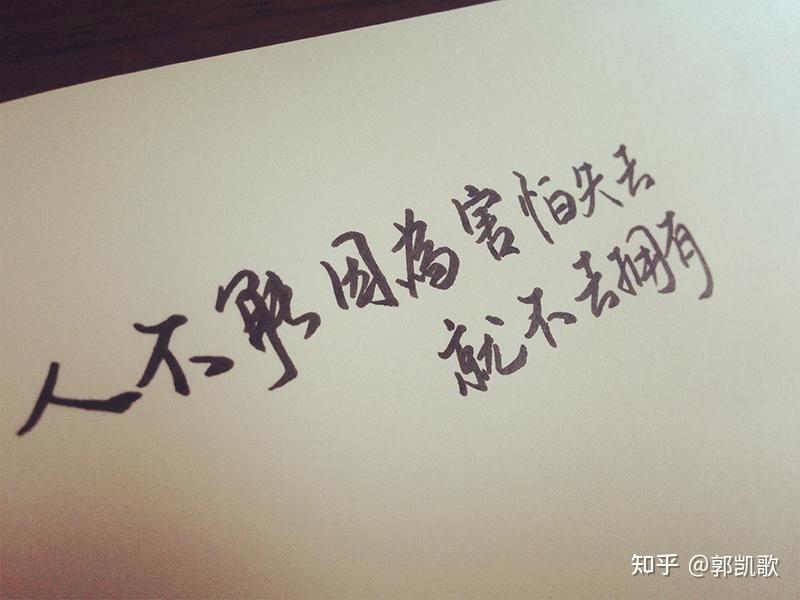 人不能因為害怕失去
就不去拥有
知乎 @郭凯歌